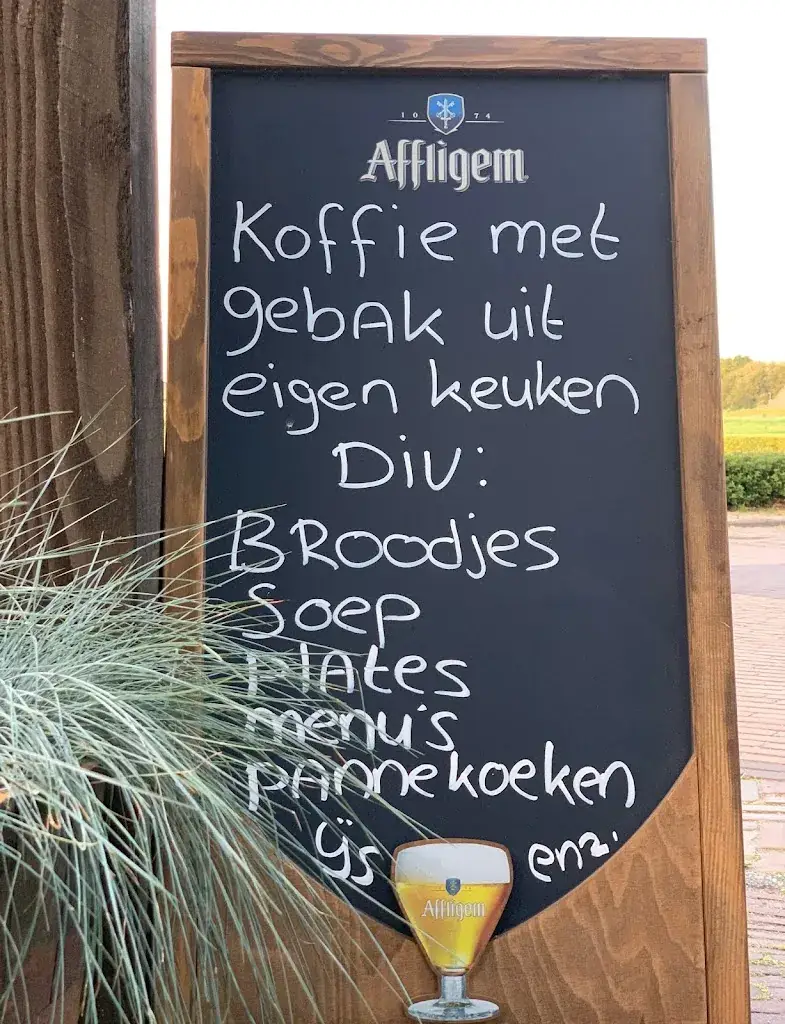 10 74
Affligem
Koffie met
gebak uit
eigen keuken
Div:
Broodjes
Soep
plates
menu's
pannekoeken
ijs enz.
Affligem